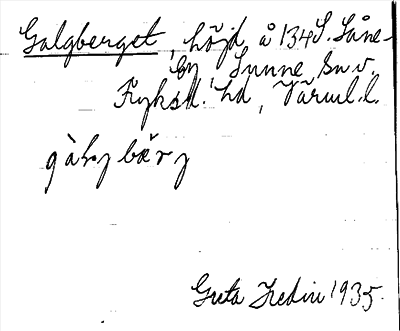 Galgberget, höjd å 134 S. Låne-
by Sunne sn v.
Fryksd. hd, Värml. l.
Greta Hedin 1935.